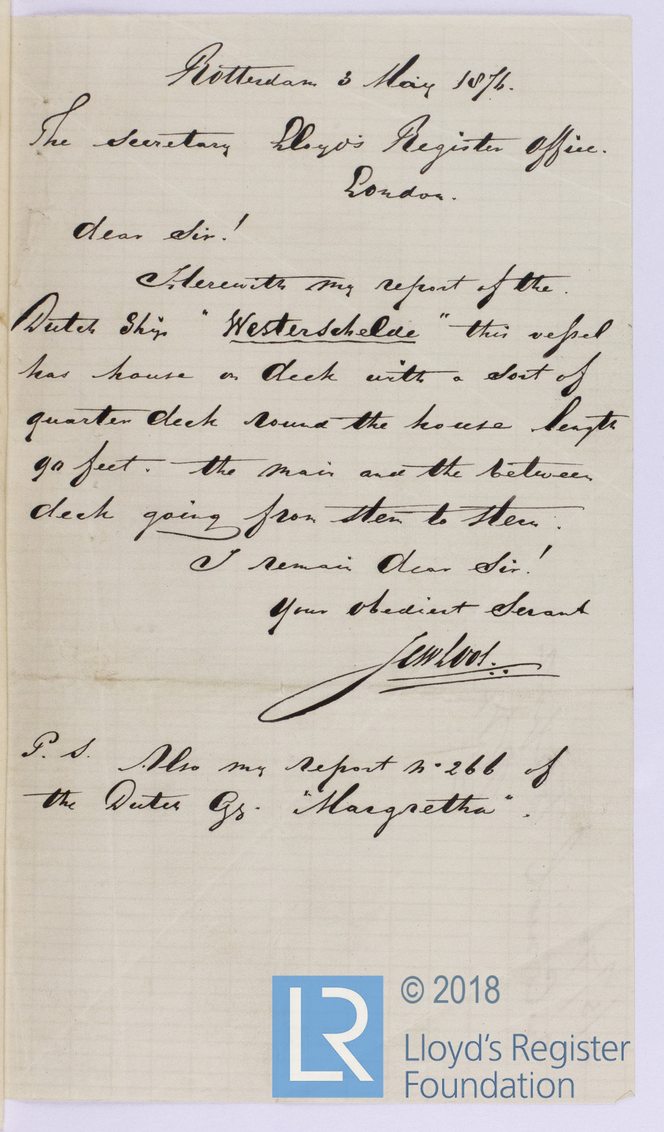 Rotterdam 3 May 1876.
The secretary Lloyd's Register Office.
London.
dear Sir!
Herewith my report of the
Dutch Ship "Westerschelde" this vessel
has house on deck with a sort of
quarter deck round the house length
90 feet. the main and the between
deck going from stem to stern.
I remain dear Sir!
Your obedient Servant
P.S. Also my report No 266 of
the Dutch "Margretha".
LR
© 2018
Lloyd's Register
Foundation